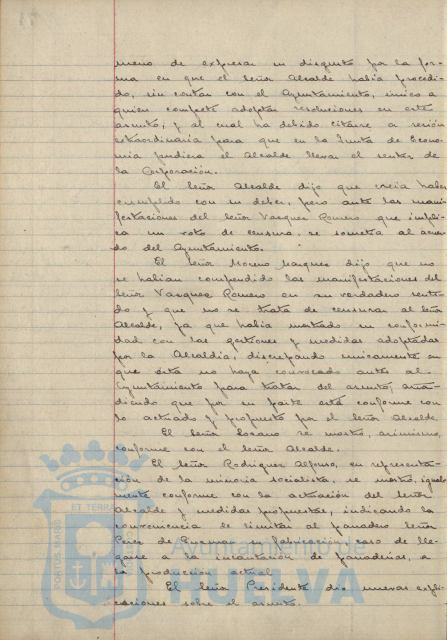 meno de expresar su disgusto por la for-
ma en que el Señor Alcalde había procedi-
do, sin contar con el Ayuntamiento, único a
quien compete adoptar resoluciones en este
asunto, y al cual ha debido citarse a sesión
extraordinaria para que en la Junta de Econo-
mía pudiera el Alcalde llevar el sentir de
la Corporación.
El Señor Alcalde dijo que creía haber
cumplido con su deber, pero ante las mani-
festaciones del Señor Vazquez Romero que impli-
ca un voto de censura, se sometía al acuer-
do del Ayuntamiento.
El Señor Moreno Marquez dijo que no
se habían comprendido las manifestaciones del
Señor Vazquez Romero en su verdadero senti-
do y que no se trata de censurar al Señor
Alcalde, ya que había mostrado su conformi-
dad con las gestiones y medidas adoptadas
por la Alcaldía, discrepando unicamente en
que ésta no haya convocado antes al
Ayuntamiento para tratar del asunto, aña-
diendo que por su parte está conforme con
lo actuado y propuesto por el Señor Alcalde.
El Señor Lozano se mostró, asimismo,
conforme con el Señor Alcalde.
El Señor Rodriguez Alfonso, en representa-
ción de la minoria socialista, se mostró, igual-
mente conforme con la actuación del Señor
Alcalde y medidas propuestas, indicando la
conveniencia de limitar al panadero Señor
Perez de Guzman su fabricación, caso de lle-
garse a la incautación de panaderías, a
la producción actual.
El Señor Presidente dió nuevas expli-
caciones sobre el asunto.
PORTUS MARIS
ET TERRAE
Ayuntamiento de
HUELVA